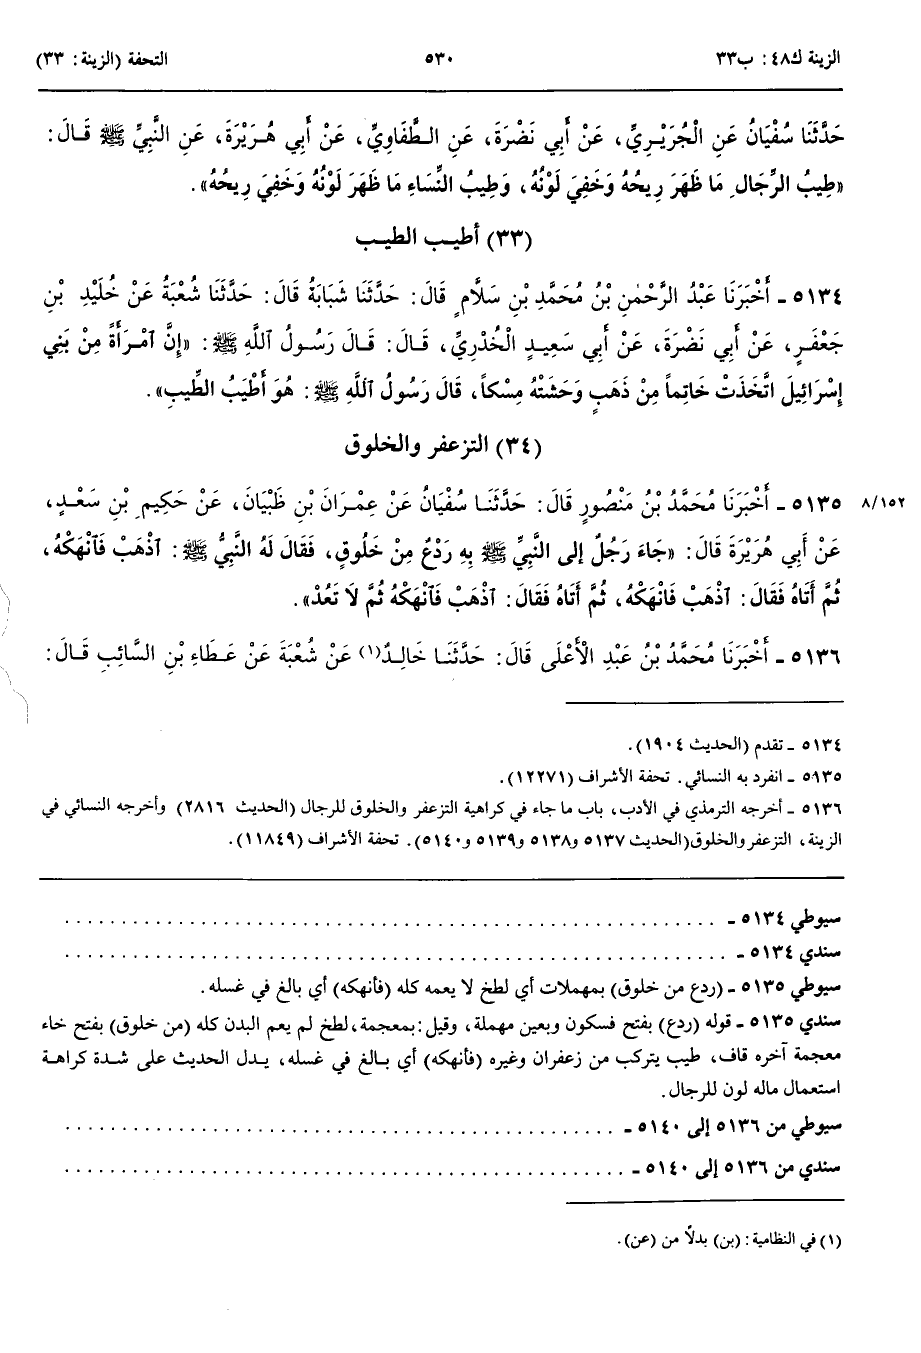 الزينة ك٤٨: ب٣٣
٥٣٠
التحفة (الزينة: ٣٣)
حَدَّثَنَا سُفْيَانُ عَنِ الْجُرَيْرِيِّ، عَنْ أَبِي نَضْرَةَ، عَنِ الطُّفَاوِيِّ، عَنْ أَبِي هُرَيْرَةَ، عَنِ النَّبِيِّ ﷺ قَالَ:
«طِيبُ الرِّجَالِ مَا ظَهَرَ رِيحُهُ وَخَفِيَ لَوْنُهُ، وَطِيبُ النِّسَاءِ مَا ظَهَرَ لَوْنُهُ وَخَفِيَ رِيحُهُ».
(٣٣) أطيب الطيب
٥١٣٤ - أَخْبَرَنَا عَبْدُ الرَّحْمٰنِ بْنُ مُحَمَّدِ بْنِ سَلَّامٍ قَالَ: حَدَّثَنَا شَبَابَةُ قَالَ: حَدَّثَنَا شُعْبَةُ عَنْ خُلَيْدِ بْنِ
جَعْفَرٍ، عَنْ أَبِي نَضْرَةَ، عَنْ أَبِي سَعِيدٍ الْخُدْرِيِّ، قَالَ: قَالَ رَسُولُ ٱللَّهِ ﷺ: «إِنَّ ٱمْرَأَةً مِنْ بَنِي
إِسْرَائِيلَ اتَّخَذَتْ خَاتِماً مِنْ ذَهَبٍ وَحَشَتْهُ مِسْكاً، قَالَ رَسُولُ ٱللَّهِ ﷺ: هُوَ أَطْيَبُ الطِّيبِ».
(٣٤) التزعفر والخلوق
٥١٣٥ - أَخْبَرَنَا مُحَمَّدُ بْنُ مَنْصُورٍ قَالَ: حَدَّثَنَا سُفْيَانُ عَنْ عِمْرَانَ بْنِ ظَبْيَانَ، عَنْ حَكِيمِ بْنِ سَعْدٍ، ٨/١٥٢
عَنْ أَبِي هُرَيْرَةَ قَالَ: «جَاءَ رَجُلٌ إلى النَّبِيِّ ﷺ بِهِ رَدْعٌ مِنْ خَلُوقٍ، فَقَالَ لَهُ النَّبِيُّ ﷺ: ٱذْهَبْ فَٱنْهَكْهُ،
ثُمَّ أَتَاهُ فَقَالَ: ٱذْهَبْ فَانْهَكْهُ، ثُمَّ أَتَاهُ فَقَالَ: ٱذْهَبْ فَٱنْهَكْهُ ثُمَّ لَا تَعُدْ».
٥١٣٦ - أَخْبَرَنَا مُحَمَّدُ بْنُ عَبْدِ الْأَعْلَى قَالَ: حَدَّثَنَا خَالِدٌ(١) عَنْ شُعْبَةَ عَنْ عَطَاءِ بْنِ السَّائِبِ قَالَ:
٥١٣٤ - تقدم (الحديث ١٩٠٤).
٥١٣٥ - انفرد به النسائي. تحفة الأشراف (١٢٢٧١).
٥١٣٦ - أخرجه الترمذي في الأدب، باب ما جاء في كراهية التزعفر والخلوق للرجال (الحديث ٢٨١٦) وأخرجه النسائي في
الزينة، التزعفر والخلوق(الحديث ٥١٣٧ و٥١٣٨ و٥١٣٩ و٥١٤٠). تحفة الأشراف (١١٨٤٩).
سيوطي ٥١٣٤ - . . . . . . . . . . . . . . . . . . . . . . . . . . . . . .
سندي ٥١٣٤ - . . . . . . . . . . . . . . . . . . . . . . . . . . . . . .
سيوطي ٥١٣٥ - (ردع من خلوق) بمهملات أي لطخ لا يعمه كله (فأنهكه) أي بالغ في غسله.
سندي ٥١٣٥ - قوله (ردع) بفتح فسكون وبعين مهملة، وقيل: بمعجمة، لطخ لم يعم البدن كله (من خلوق) بفتح خاء
معجمة آخره قاف، طيب يتركب من زعفران وغيره (فأنهكه) أي بالغ في غسله، يدل الحديث على شدة كراهة
استعمال ماله لون للرجال.
سيوطي من ٥١٣٦ إلى ٥١٤٠ - . . . . . . . . . . . . . . . . . . . . . . . . . . . . . .
سندي من ٥١٣٦ إلى ٥١٤٠ - . . . . . . . . . . . . . . . . . . . . . . . . . . . . . .
(١) في النظامية: (بن) بدلاً من (عن).